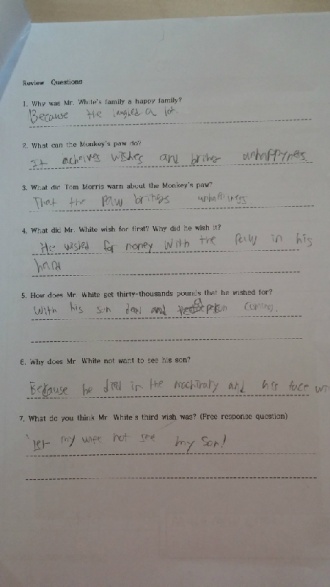 Review Questions
1. Why was Mr. White's family a happy family?
Because the laughed a lot.
2. What can the Monkey's paw do?
It acheives wishes and brings unhappynes
3. What did Tom Morris warn about the Monkey's paw?
That the paw brings unhappiness
4. What did Mr. White wish for first? Why did he wish it?
He wished for money with the paw in his
hand
5. How does Mr. White get thirty-thousands pounds that he wished for?
With his son dead and
6. Why does Mr. White not want to see his son?
Because he died in the machinary and his face
7. What do you think Mr. White's third wish was? (Free response question)
"let my wife not see my son!